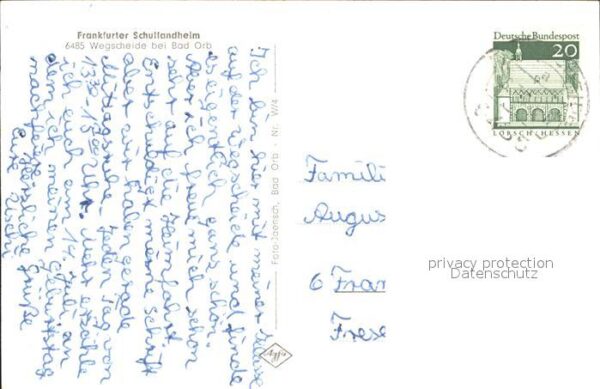 Frankfurter Schullandheim
6485 Wegscheide bei Bad Orb
Ich bin hier mit meiner Klasse
auf der Wegscheide und finde
es eigentlich ganz schön.
Aber ich freu mich schon
sehr auf die Heimfahrt.
Entschuldigt meine Schrift
aber wir haben gerade
Mittagsruhe. Jeden Tag von
13⁰⁰-15⁰⁰ Uhr.
ich euch am 14. Juli an
dem ich meinen Geburtstag
Herzliche Grüße
Eure
Foto Jaensch, Bad Orb - Nr. W/4
Deutsche Bundespost
20
LORSCH/HESSEN
Famili
Augus
6 Fran
Frese
privacy protection
Datenschutz